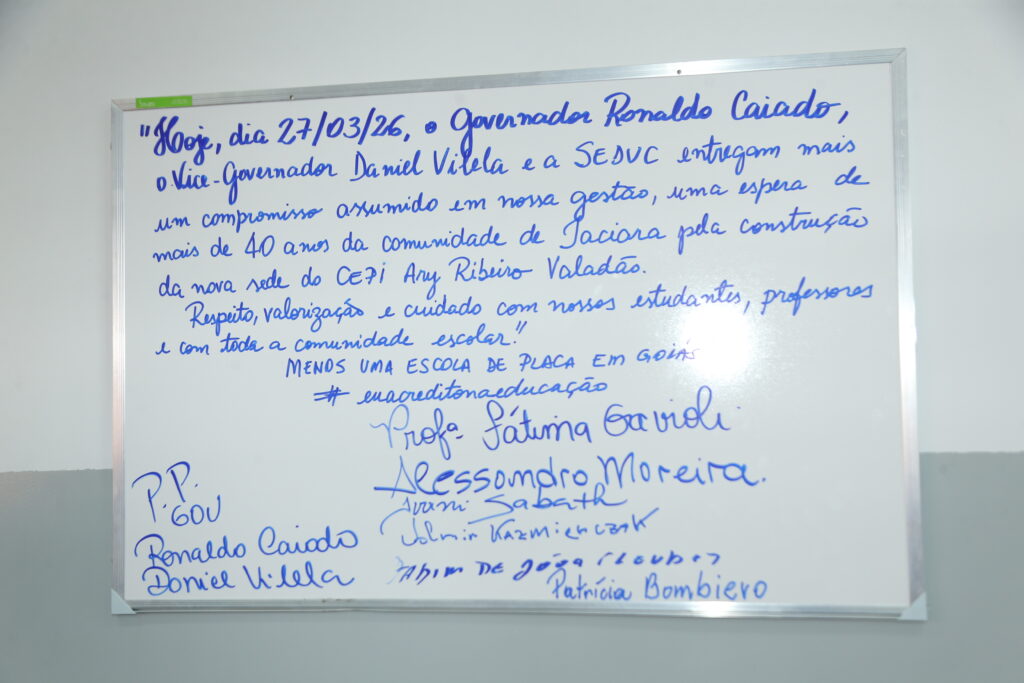 "Hoje, dia 27/03/26, o Governador Ronaldo Caiado,
o Vice-Governador Daniel Vilela e a SEDUC entregam mais
um compromisso assumido em nossa gestão, uma espera de
mais de 40 anos da comunidade de Jaciara pela construção
da nova sede do CEPI Ary Ribeiro Valadão.
Respeito, valorização e cuidado com nossos estudantes, professores
e com toda a comunidade escolar."
MENOS UMA ESCOLA DE PLACA EM GOIÁS
# euacreditonaeducação
Profª. Fátima Gavioli
Alessandro Moreira.
Sabath
Kazmienczak
DE
Patrícia Bombiero
P.P.
GOV
Ronaldo Caiado
Daniel Vilela